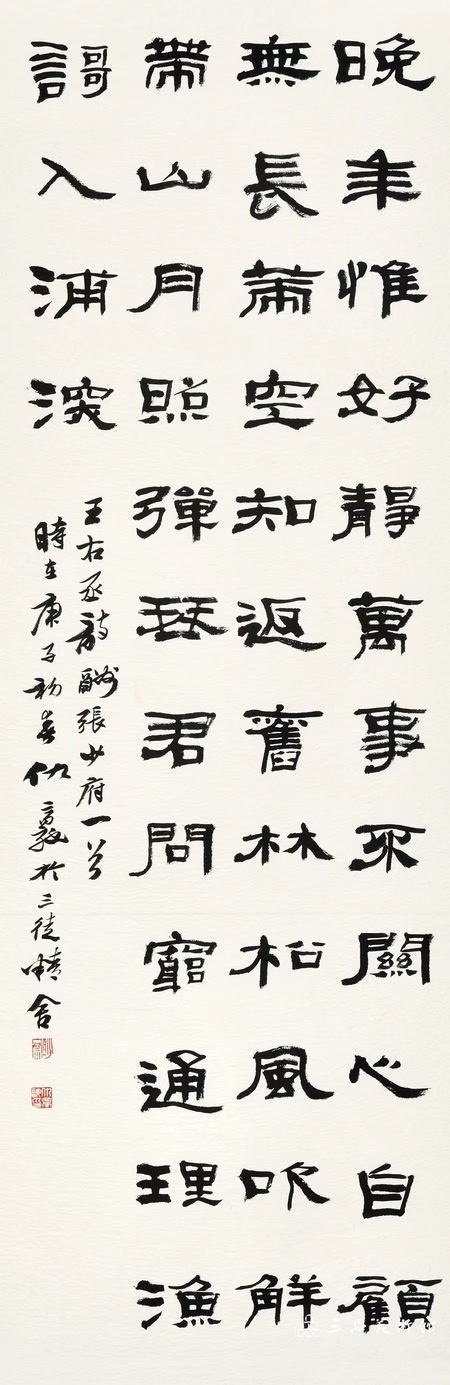 晚年惟好靜萬事不關心自顧
無長策空知返舊林松風吹解
帶山月照彈琴君問窮通理漁
謌入浦深
王右丞詩酬張少府一首
時在庚子初春仇敦於三徒舍